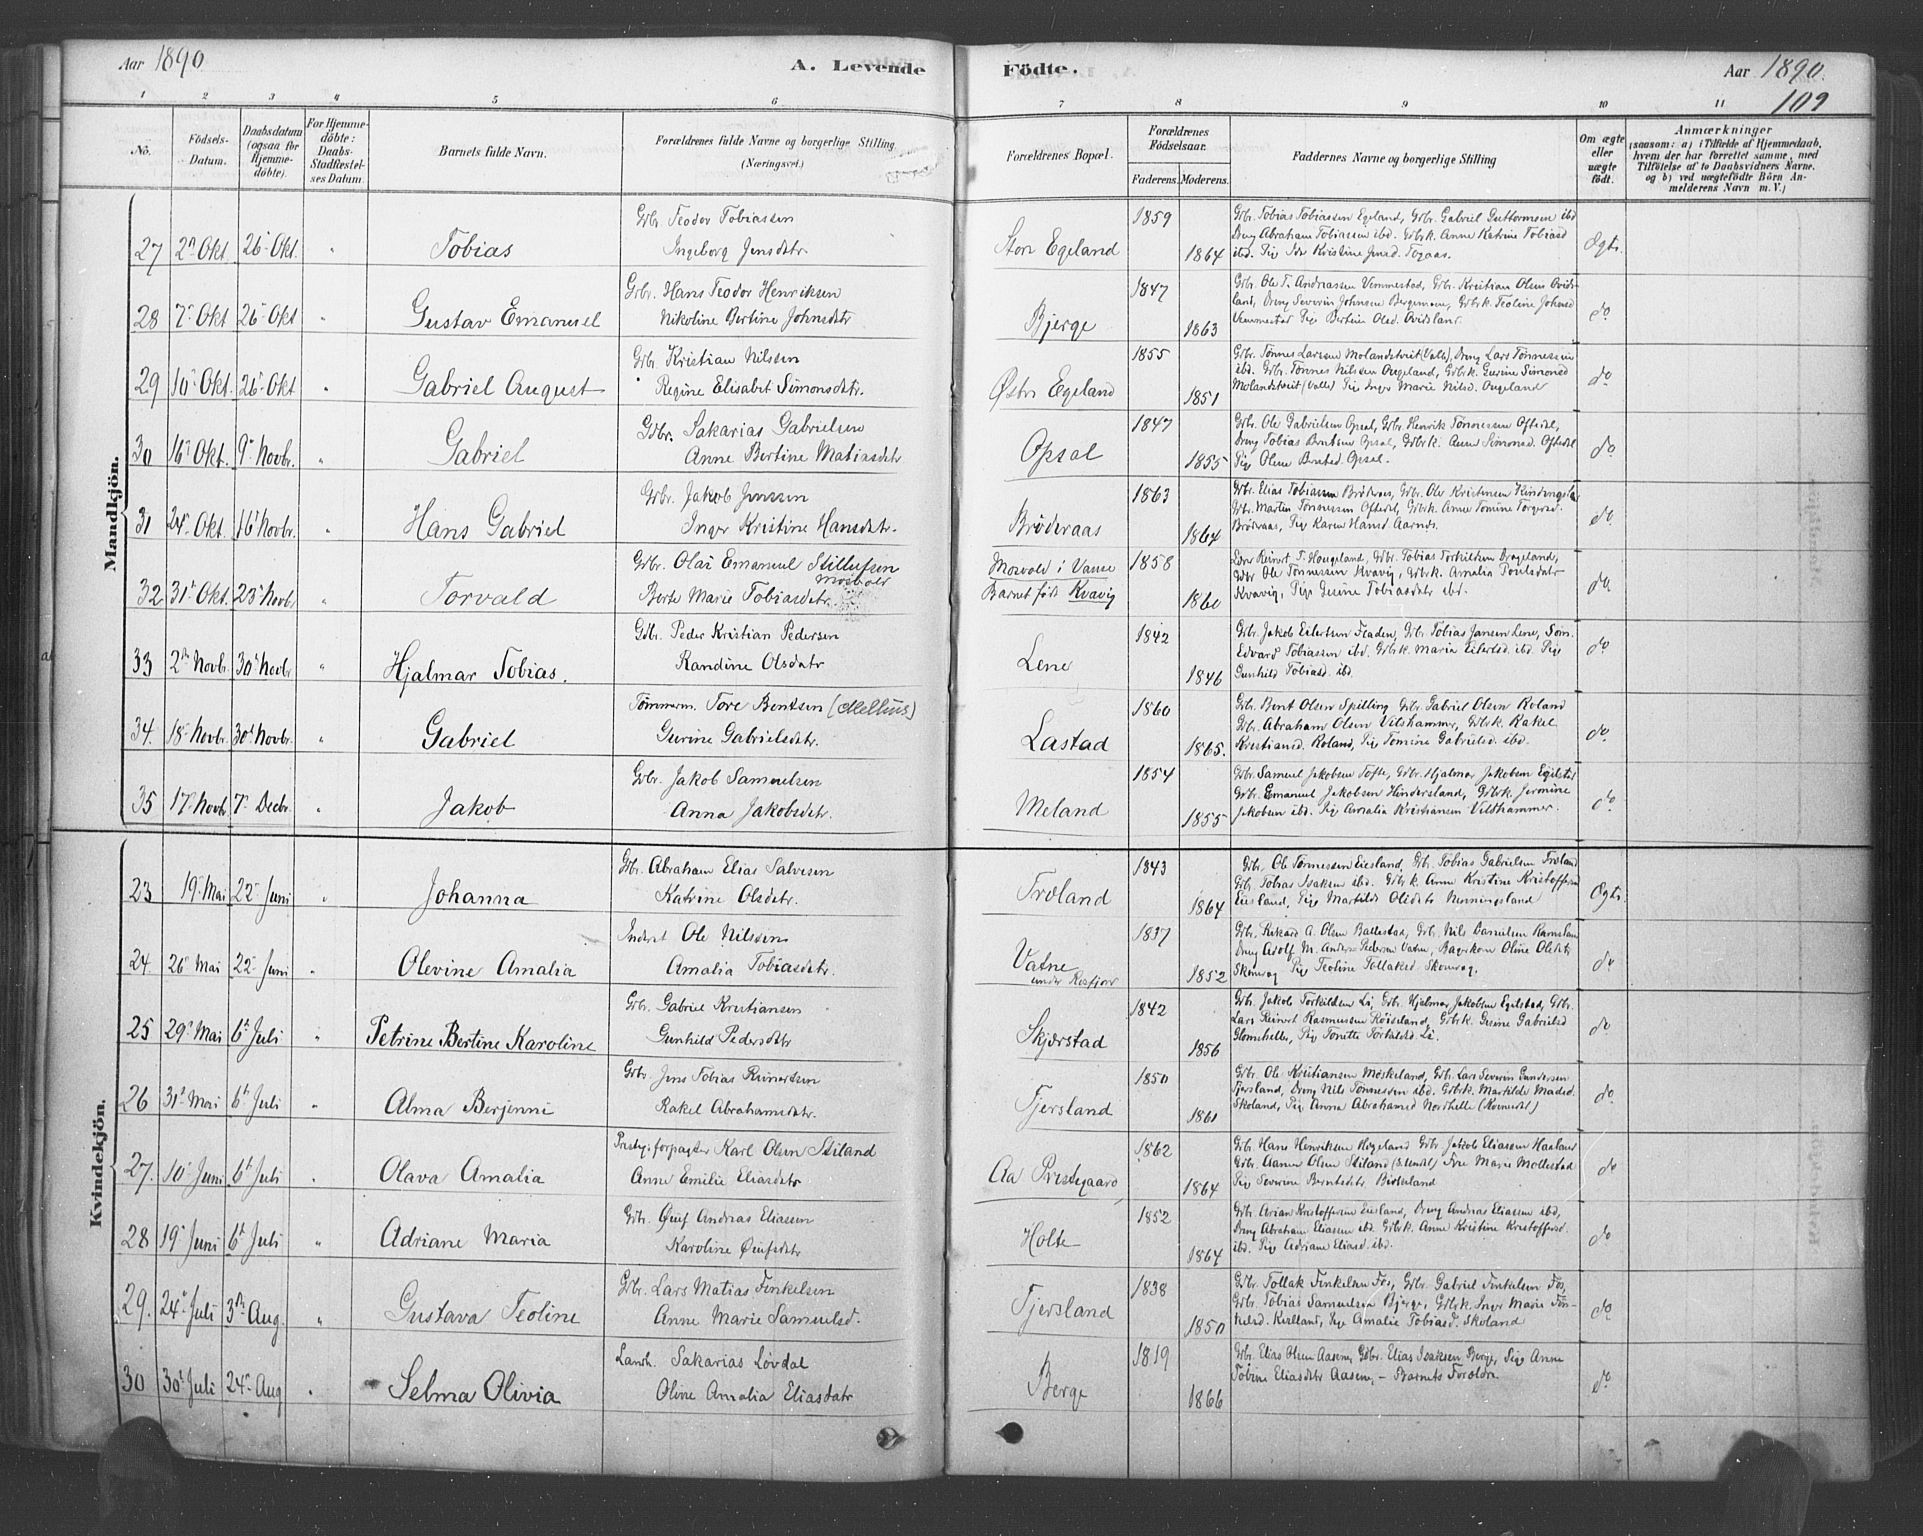 Aar 1890
A. Levende Födte.
Aar 1890.
109
1 2 3 4 5 6 7 8 9 10 11
No.
Födsels-Datum.
Daabsdatum (ogsaa for Hjemmedöbte).
For Hjemmedöbte: Daabs-Stadfestelses Datum.
Barnets fulde Navn.
Forældrenes fulde Navne og borgerlige Stilling (Næringsvei.)
Forældrenes Bopæl.
Forældrenes Födselsaar.
Faderens. Moderens.
Faddernes Navne og borgerlige Stilling
Om ægte eller uægte født.
Anmærkninger
(saasom: a) i Tilfælde af Hjemmedaab, hvem der har forrettet samme, med Tilföielse af to Daabsvidners Navne. og b) ved uægtefödte Börn Anmelderens Navn m. V.)
Mandkjön.
27 2n Okt. 26 Okt. " Tobias
Gbr. Teodor Tobiassen
Ingeborg Jensdatr.
Store Egeland 1859 1864
Gbr. Tobias Tobiassen Egeland, Gbr. Gabriel Guttormsen ibd
Dreng Abraham Tobiassen ibd. Gbrk. Anne Katrine Tobiasd
ibd. Pig Ida Kristine Jensd.
Ægte.
28 7 Okt 26 Okt " Gustav Emanuel
Gbr. Hans Teodor Henriksen
Nikoline Bertine Johnsdatr
Bjerge 1847 1863
Gbr. Ole T. Andreassen Vemmestad, Gbr. Kristian Olsen Ovids-
land, Dreng Severin Johnsen Bergsmoen, Gbrk. Teoline Johnsd
Vemmestad Pig Bertine Olsd. Ovidsland.
do
29 10 Okt. 26 Okt " Gabriel August
Gbr. Kristian Nilssen
Regine Elisabet Simonsdatr.
Østre Egeland 1855 1851
Gbr. Tønnes Larssen Molandstveit (Valle), Dreng Lars Tønnessen
ibd. Gbr. Tønnes Nilssen Augeland, Gbrk. Gurine Simonsd
Molandstveit (Valle) Pig Inger Marie Nilsd. Augeland
do
30 16 Okt. 9 Novbr. " Gabriel
Gbr. Sakarias Gabrielsen
Anne Bertine Matiasdatr
Opsal 1847 1855
Gbr. Ole Gabrielsen Opsal, Gbr. Henrik Tønnessen Oftedal,
Dreng Tobias Berntsen Opsal, Gbrk. Anne Simonsd. Oftedal
Pig Oline Berntsd. Opsal.
do
31 24 Okt. 16 Novbr. " Hans Gabriel
Gbr. Jakob Jenssen
Inger Kristine Hansdatr.
Brøderaas 1863 1864
Gbr. Elias Tobiassen Brøderaas, Gbr. Ole Kristensen
Gbr. Martin Tønnessen Oftedal, Gbrk. Anne Tomine Torgersd.
Brøderaas, Pig Karen Hansd. Aarnes.
do
32 31 Okt. 23 Novbr " Torvald
Gbr. Olai Emanuel Stillufsen Mosvold
Berte Marie Tobiasdatr.
Mosvold i Vanse
Barnet født Kvavig 1858 1860
Reinert T. Haugeland, Gbr. Tobias Torkildsen Drageland,
Gbr Ole Tønnessen Kvavig, Gbrk. Amalia Poulsdatr
Kvavig, Pige Gurine Tobiasdatr ibd.
do
33 2n Novbr. 30 Novbr " Hjalmar Tobias.
Gbr. Peder Kristian Pedersen
Randine Olsdatr
Lene 1842 1846
Gbr. Jakob Eilertsen Fladen, Gbr. Tobias Jansen Lene, Søm.
Edvard Tobiassen ibd. Gbrk. Maria Eilertsd. ibd Pige
Gunhild Tobiasd. ibd.
do
34. 18 Novbr. 30 Novbr. " Gabriel
Tømmerm. Tore Bentsen (Melhus)
Gurine Gabrielsdatr.
Lastad 1860 1865.
Gbr. Bent Olsen Spilling Gbr. Gabriel Olsen Roland
Gbr. Abraham Olsen Vilshammer, Gbrk. Rakel
Kristiansd. Roland, Pig Tomine Gabrielsd. ibd.
do
35 17 Novbr. 7 Decbr. " Jakob
Gbr. Jakob Samuelsen
Anna Jakobsdatr.
Meland 1854 1855
Gbr. Samuel Jakobsen Tofte, Gbr. Hjalmar Jakobsen Egilstad
Gbr. Emanuel Jakobsen Hindersland, Gbrk. Jermine
Jakobsen ibd. Pig Amalia Kristiansen Vilshammer.
do
Kvindekjön.
23 19 Mai 22 Juni " Johanna
Gbr. Abraham Elias Salvesen
Katrine Olsdatr.
Frøland 1843 1864
Gbr. Ole Tønnessen Eiesland, Gbr. Tobias Gabrielsen Frøland
Gbr. Tobias Isaksen ibd. Gbrk. Anne Kristine Kristoffersen
Eiesland, Pige Martilde Olsdatr Nenningsland
Ægte.
24. 26 Mai 22 Juni " Olevine Amalia
Inderst Ole Nilssen
Amalia Tobiasdatr.
Vatne
under Rosfjord 1837 1852
Gbr. Rikard A. Olsen Ballestad, Gbr. Nils Danielsen Ramsland
Dreng Adolf M. Anders Pedersen Vatne, Bagerkon Oline Olsdatr
Skomrag Pig Teoline Tollaksd. Skomrag.
do
25 29 Mai 6 Juli " Petrine Bertine Karoline
Gbr. Gabriel Kristiansen
Gunhild Pedersdatr
Skjærstad 1842 1856
Gbr. Jakob Torkildsen Li, Gbr. Hjalmar Jakobsen Egilstad, Gbr.
Lars Reinert Rasmussen Røiseland, Gbrk. Gurine Gabrielsd
Glomehelle, Pig Tonette Torkildsd. Li.
do
26 31 Mai 6 Juli " Alma Berjenni
Gbr. Jens Tobias Reinertsen
Rakel Abrahamsdatr.
Tjersland 1850 1861
Gbr. Ole Kristiansen Møskeland, Gbr. Lars Severin Gundersen
Tjersland, Dreng Nils Tønnessen ibd. Gbrk. Martilde Madsd.
Skoland, Pig Anna Abrahamsd Nordhelle (Kvinesdal)
do
27. 10 Juni 6 Juli " Olava Amalia
Prestg.forpagter Karl Olsen Stiland
Anne Emilie Eliasdatr
Aa Prestegaard 1862 1864
Gbr. Hans Henriksen Høgeland Gbr. Jakob Eliassen Haaland
Gbr. Aanen Olsen Stiland Frue Marie Møllestad
Pig Severine Berntsdatr Birkeland
do
28 19 Juni 6 Juli " Adriane Maria
Gbr. Øuf Andreas Eliassen
Karoline Øufsdatr
Holte 1852 1864
Gbr. Arian Kristoffersen Eiesland, Dreng Andreas Eliassen ibd,
Dreng Abraham Eliassen ibd. Gbrk. Anne Kristine Kristoffersd.
ibd. Pig Adriane Eliasd. ibd.
do
29. 24 Juli 3die Aug. " Gustava Teoline
Gbr. Lars Matias Finkelsen
Anne Marie Samuelsd.
Tjersland 1838 1850
Gbr. Tollak Finkelsen Fos, Gbr. Gabriel Finkelsen Fos,
Gbr. Tobias Samuelsen Bjerge, Gbrk. Inger Marie Fin-
kelsd. Kvelland, Pige Amalie Tobiasd. Skoland
do
30 30 Juli 24 Aug " Selma Olivia
Landh. Sakarias Løvdal
Oline Amalia Eliasdatr
Berge 1819 1866
Gbr. Elias Olsen Aasen, Gbr. Elias Isaksen Berge, Pige Anne
Tobine Eliasdatr Aasen, – Barnets Forældre
do